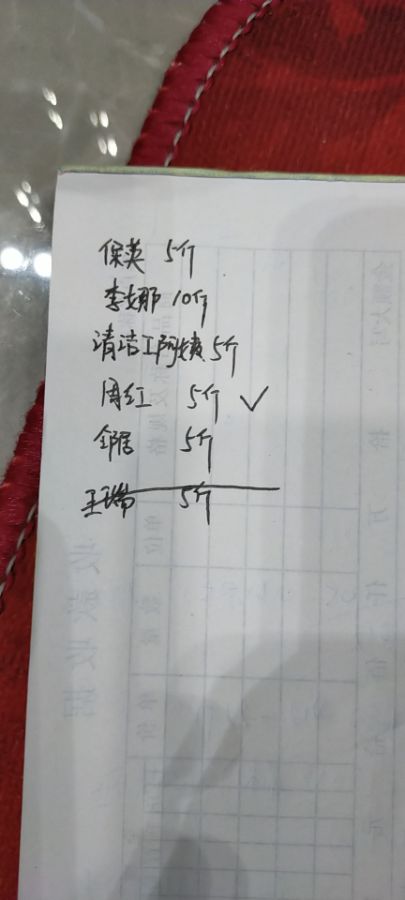 保英 5斤
李娜 10斤
清洁工阿姨 5斤
周红 5斤 ✓
邻居 5斤
王瑞 5斤